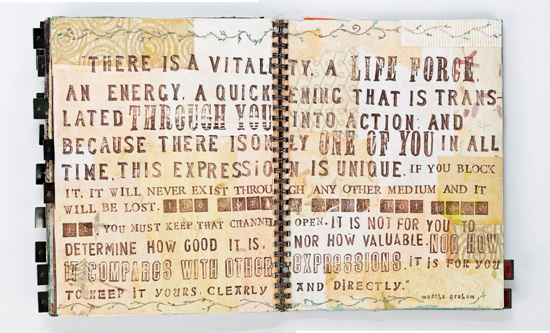 "THERE IS A VITALITY, A LIFE FORCE,
AN ENERGY, A QUICKENING THAT IS TRANS-
LATED THROUGH YOU INTO ACTION; AND
BECAUSE THERE IS ONLY ONE OF YOU IN ALL
TIME, THIS EXPRESSION IS UNIQUE. IF YOU BLOCK
IT, IT WILL NEVER EXIST THROUGH ANY OTHER MEDIUM AND IT
WILL BE LOST.
YOU MUST KEEP THAT CHANNEL OPEN. IT IS NOT FOR YOU TO
DETERMINE HOW GOOD IT IS, NOR HOW VALUABLE. NOR HOW
IT COMPARES WITH OTHER EXPRESSIONS. IT IS FOR YOU
TO KEEP IT YOURS. CLEARLY AND DIRECTLY."
martha graham